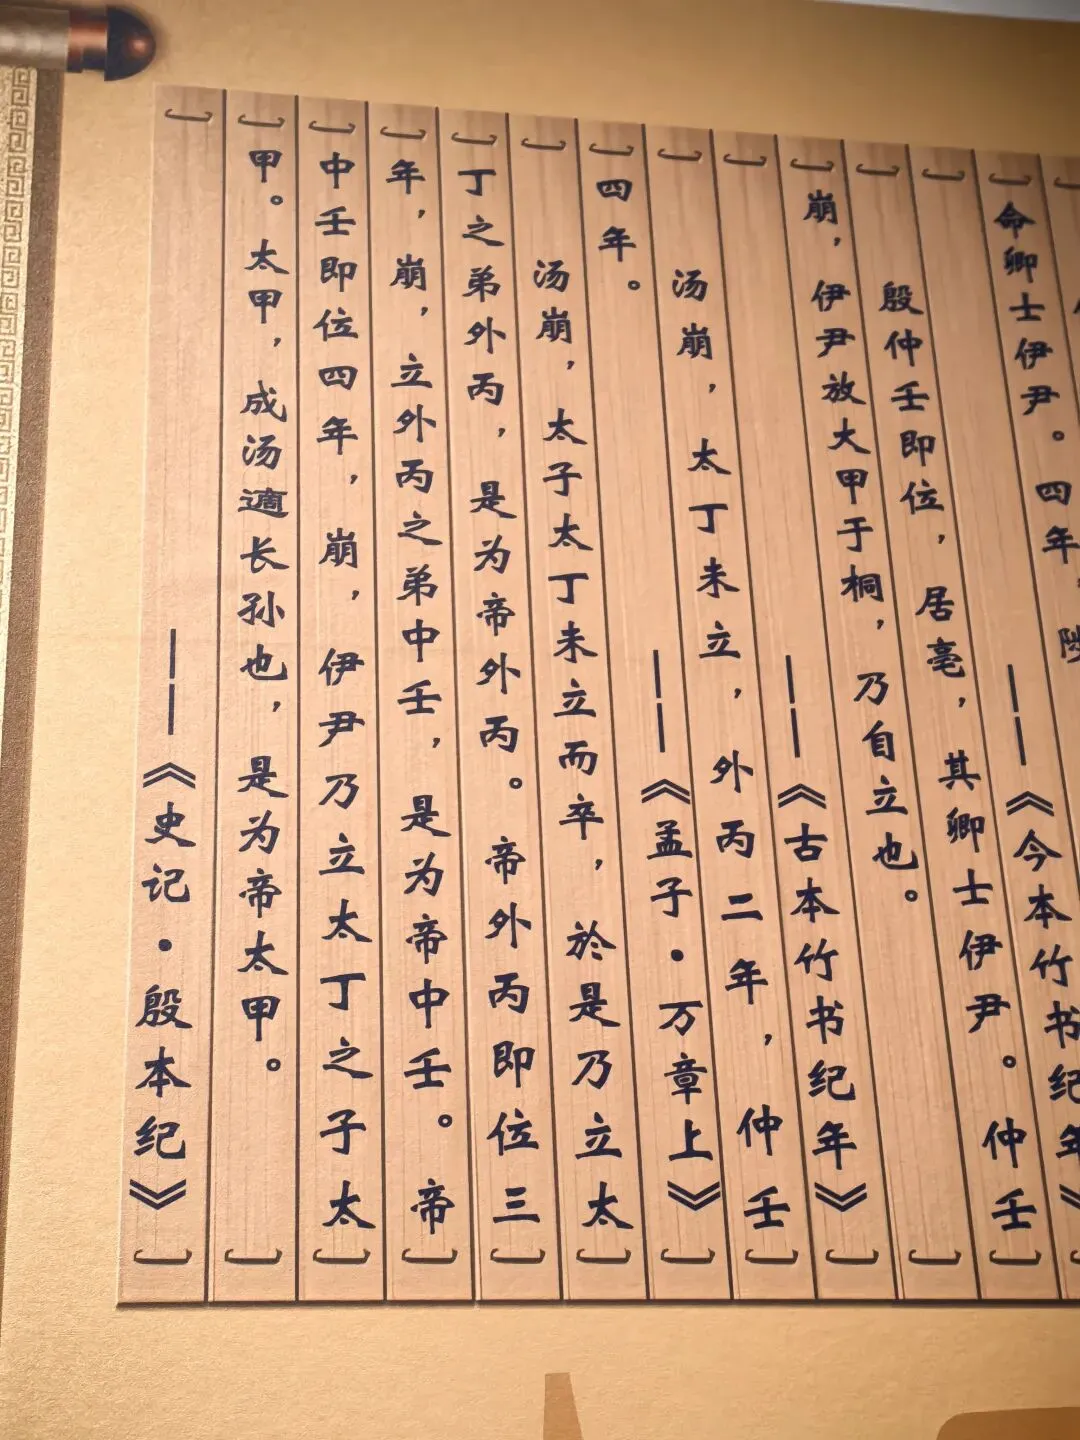 命卿士伊尹。四年,
——《今本竹书纪年》
殷仲壬即位,居亳,其卿士伊尹。仲壬
崩,伊尹放大甲于桐,乃自立也。
——《古本竹书纪年》
汤崩,太丁未立,外丙二年,仲壬
四年。 ——《孟子·万章上》
汤崩,太子太丁未立而卒,於是乃立太
丁之弟外丙,是为帝外丙。帝外丙即位三
年,崩,立外丙之弟中壬,是为帝中壬。帝
中壬即位四年,崩,伊尹乃立太丁之子太
甲。太甲,成汤適长孙也,是为帝太甲。
——《史记·殷本纪》